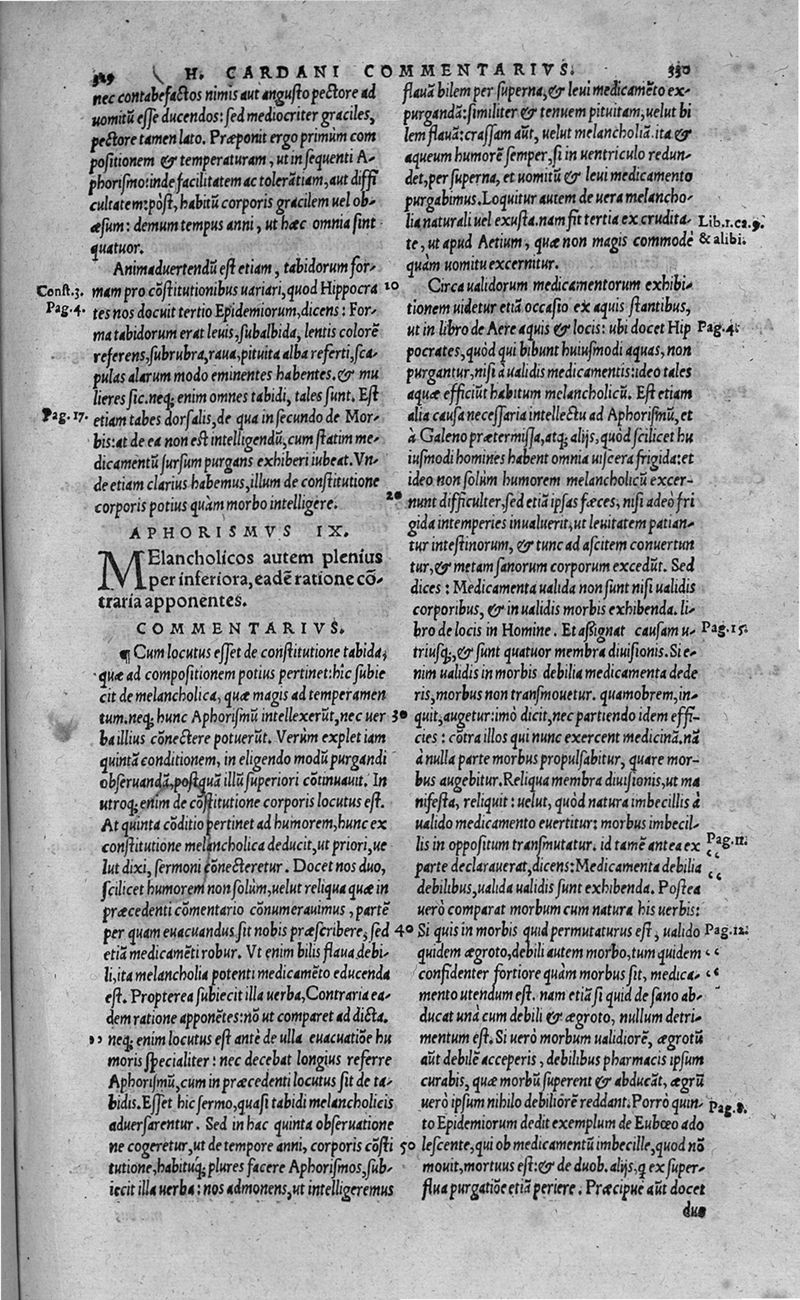 529 H. CARDANI COMMENTARIVS. 530
nec contabefactos nimis aut angusto pectore ad
uomitū esse ducendos: sed mediocriter graciles,
pectore tamen lato. Præponit ergo primùm com
positionem & temperaturam, ut in sequenti A-
phorismo: inde facilitatem ac tolerātiam, aut diffi
cultatem: pòst, habitū corporis gracilem uel ob-
æsum: demum tempus anni, ut hæc omnia sint
quatuor.
Animaduertendū est etiam, tabidorum for-
Const. 3.
mam pro cōstitutionibus uariari, quod Hippocra
Pag. 4.
tes nos docuit tertio Epidemiorum, dicens: For-
ma tabidorum erat leuis, subalbida, lentis colorē
referens, subrubra, raua, pituita alba referti, sca-
pulas alarum modo eminentes habentes. & mu
lieres sic. neq; enim omnes tabidi, tales sunt. Est
Pag. 17.
etiam tabes dorsalis, de qua in secundo de Mor-
bis: at de ea non est intelligendū, cum statim me-
dicamentū sursum purgans exhiberi iubeat. Vn-
de etiam clarius habemus, illum de constitutione
corporis potius quàm morbo intelligere.
APHORISMVS IX.
MElancholicos autem plenius
per inferiora, eadē ratione cō-
traria apponentes.
COMMENTARIVS.
¶ Cum locutus esset de constitutione tabida,
quæ ad compositionem potius pertinet: hîc subie
cit de melancholica, quæ magis ad temperamen
tum. neq; hunc Aphorismū intellexerūt, nec uer
ba illius cōnectere potuerūt. Verùm explet iam
quintā conditionem, in eligendo modū purgandi
obseruandā, postquā illū superiori cōtinuauit. In
utroq; enim de cōstitutione corporis locutus est.
At quinta cōditio pertinet ad humorem, hunc ex
constitutione melancholica deducit, ut priori, ue
lut dixi, sermoni cōnecteretur. Docet nos duo,
scilicet humorem non solùm, uelut reliqua quæ in
præcedenti cōmentario cōnumerauimus, partē
per quam euacuandus sit nobis præscribere, sed
etiā medicamēti robur. Vt enim bilis flaua debi-
li, ita melancholia potenti medicamēto educenda
est. Propterea subiecit illa uerba, Contraria ea-
dem ratione apponētes: nō ut comparet ad dicta.
neq; enim locutus est antè de ulla euacuatiōe hu
moris specialiter: nec decebat longius referre
Aphorismū, cum in præcedenti locutus sit de ta-
bidis. Esset hic sermo, quasi tabidi melancholicis
aduersarentur. Sed in hac quinta obseruatione
ne cogeretur, ut de tempore anni, corporis cōsti
tutione, habituq; plures facere Aphorismos, sub-
iecit illa uerba: nos admonens, ut intelligeremus
10
20
30
40
50
flauā bilem per superna, & leui medicamēto ex-
purgandā: similiter & tenuem pituitam, uelut bi
lem flauā: crassam aūt, uelut melancholiā. ita &
aqueum humorē semper, si in uentriculo redun-
det, per superna, et uomitū & leui medicamento
purgabimus. Loquitur autem de uera melancho-
lia naturali uel exusta. nam fit tertia ex crudita-
Lib. 1. ca. 9.
te, ut apud Aetium, quæ non magis commodè
& alibi.
quàm uomitu excernitur.
Circa ualidorum medicamentorum exhibi-
tionem uidetur etiā occasio ex aquis stantibus,
ut in libro de Aere aquis & locis: ubi docet Hip
Pag. 4.
pocrates, quòd qui bibunt huiusmodi aquas, non
purgantur, nisi à ualidis medicamentis: ideo tales
aquæ efficiūt habitum melancholicū. Est etiam
alia causa necessaria intellectu ad Aphorismū, et
à Galeno prætermissa, atq; alijs, quòd scilicet hu
iusmodi homines habent omnia uiscera frigida: et
ideo non solùm humorem melancholicū excer-
nunt difficulter, sed etiā ipsas fæces, nisi adeò fri
gida intemperies inualuerit, ut leuitatem patian-
tur intestinorum, & tunc ad ascitem conuertun
tur, & metam sanorum corporum excedūt. Sed
dices: Medicamenta ualida non sunt nisi ualidis
corporibus, & in ualidis morbis exhibenda. li-
bro de locis in Homine. Et assignat causam u-
Pag. 15.
triusq;, & sunt quatuor membra diuisionis. Si e-
nim ualidis in morbis debilia medicamenta dede
ris, morbus non transmouetur. quamobrem, in-
quit, augetur: imò dicit, nec partiendo idem effi-
cies: cōtra illos qui nunc exercent medicinā. nā
à nulla parte morbus propulsabitur, quare mor-
bus augebitur. Reliqua membra diuisionis, ut ma
nifesta, reliquit: uelut, quòd natura imbecillis à
ualido medicamento euertitur: morbus imbecil-
lis in oppositum transmutatur. id tamē antea ex
Pag. 11.
parte declarauerat, dicens: Medicamenta debilia
debilibus, ualida ualidis sunt exhibenda. Postea
uerò comparat morbum cum natura his uerbis:
Si quis in morbis quid permutaturus est, ualido
Pag. 12.
quidem ægroto, debili autem morbo, tum quidem
confidenter fortiore quàm morbus sit, medica-
mento utendum est. nam etiā si quid de sano ab-
ducat unà cum debili & ægroto, nullum detri-
mentum est. Si uerò morbum ualidiorē, ægrotū
aūt debilē acceperis, debilibus pharmacis ipsum
curabis, quæ morbū superent & abducāt, ægrū
uerò ipsum nihilo debiliorē reddant. Porrò quin-
Pag. 8.
to Epidemiorum dedit exemplum de Eubœo ado
lescente, qui ob medicamentū imbecille, quod nō
mouit, mortuus est: & de duob. alijs, q ex super-
flua purgatiōe etiā periere. Præcipue aūt docet
duo